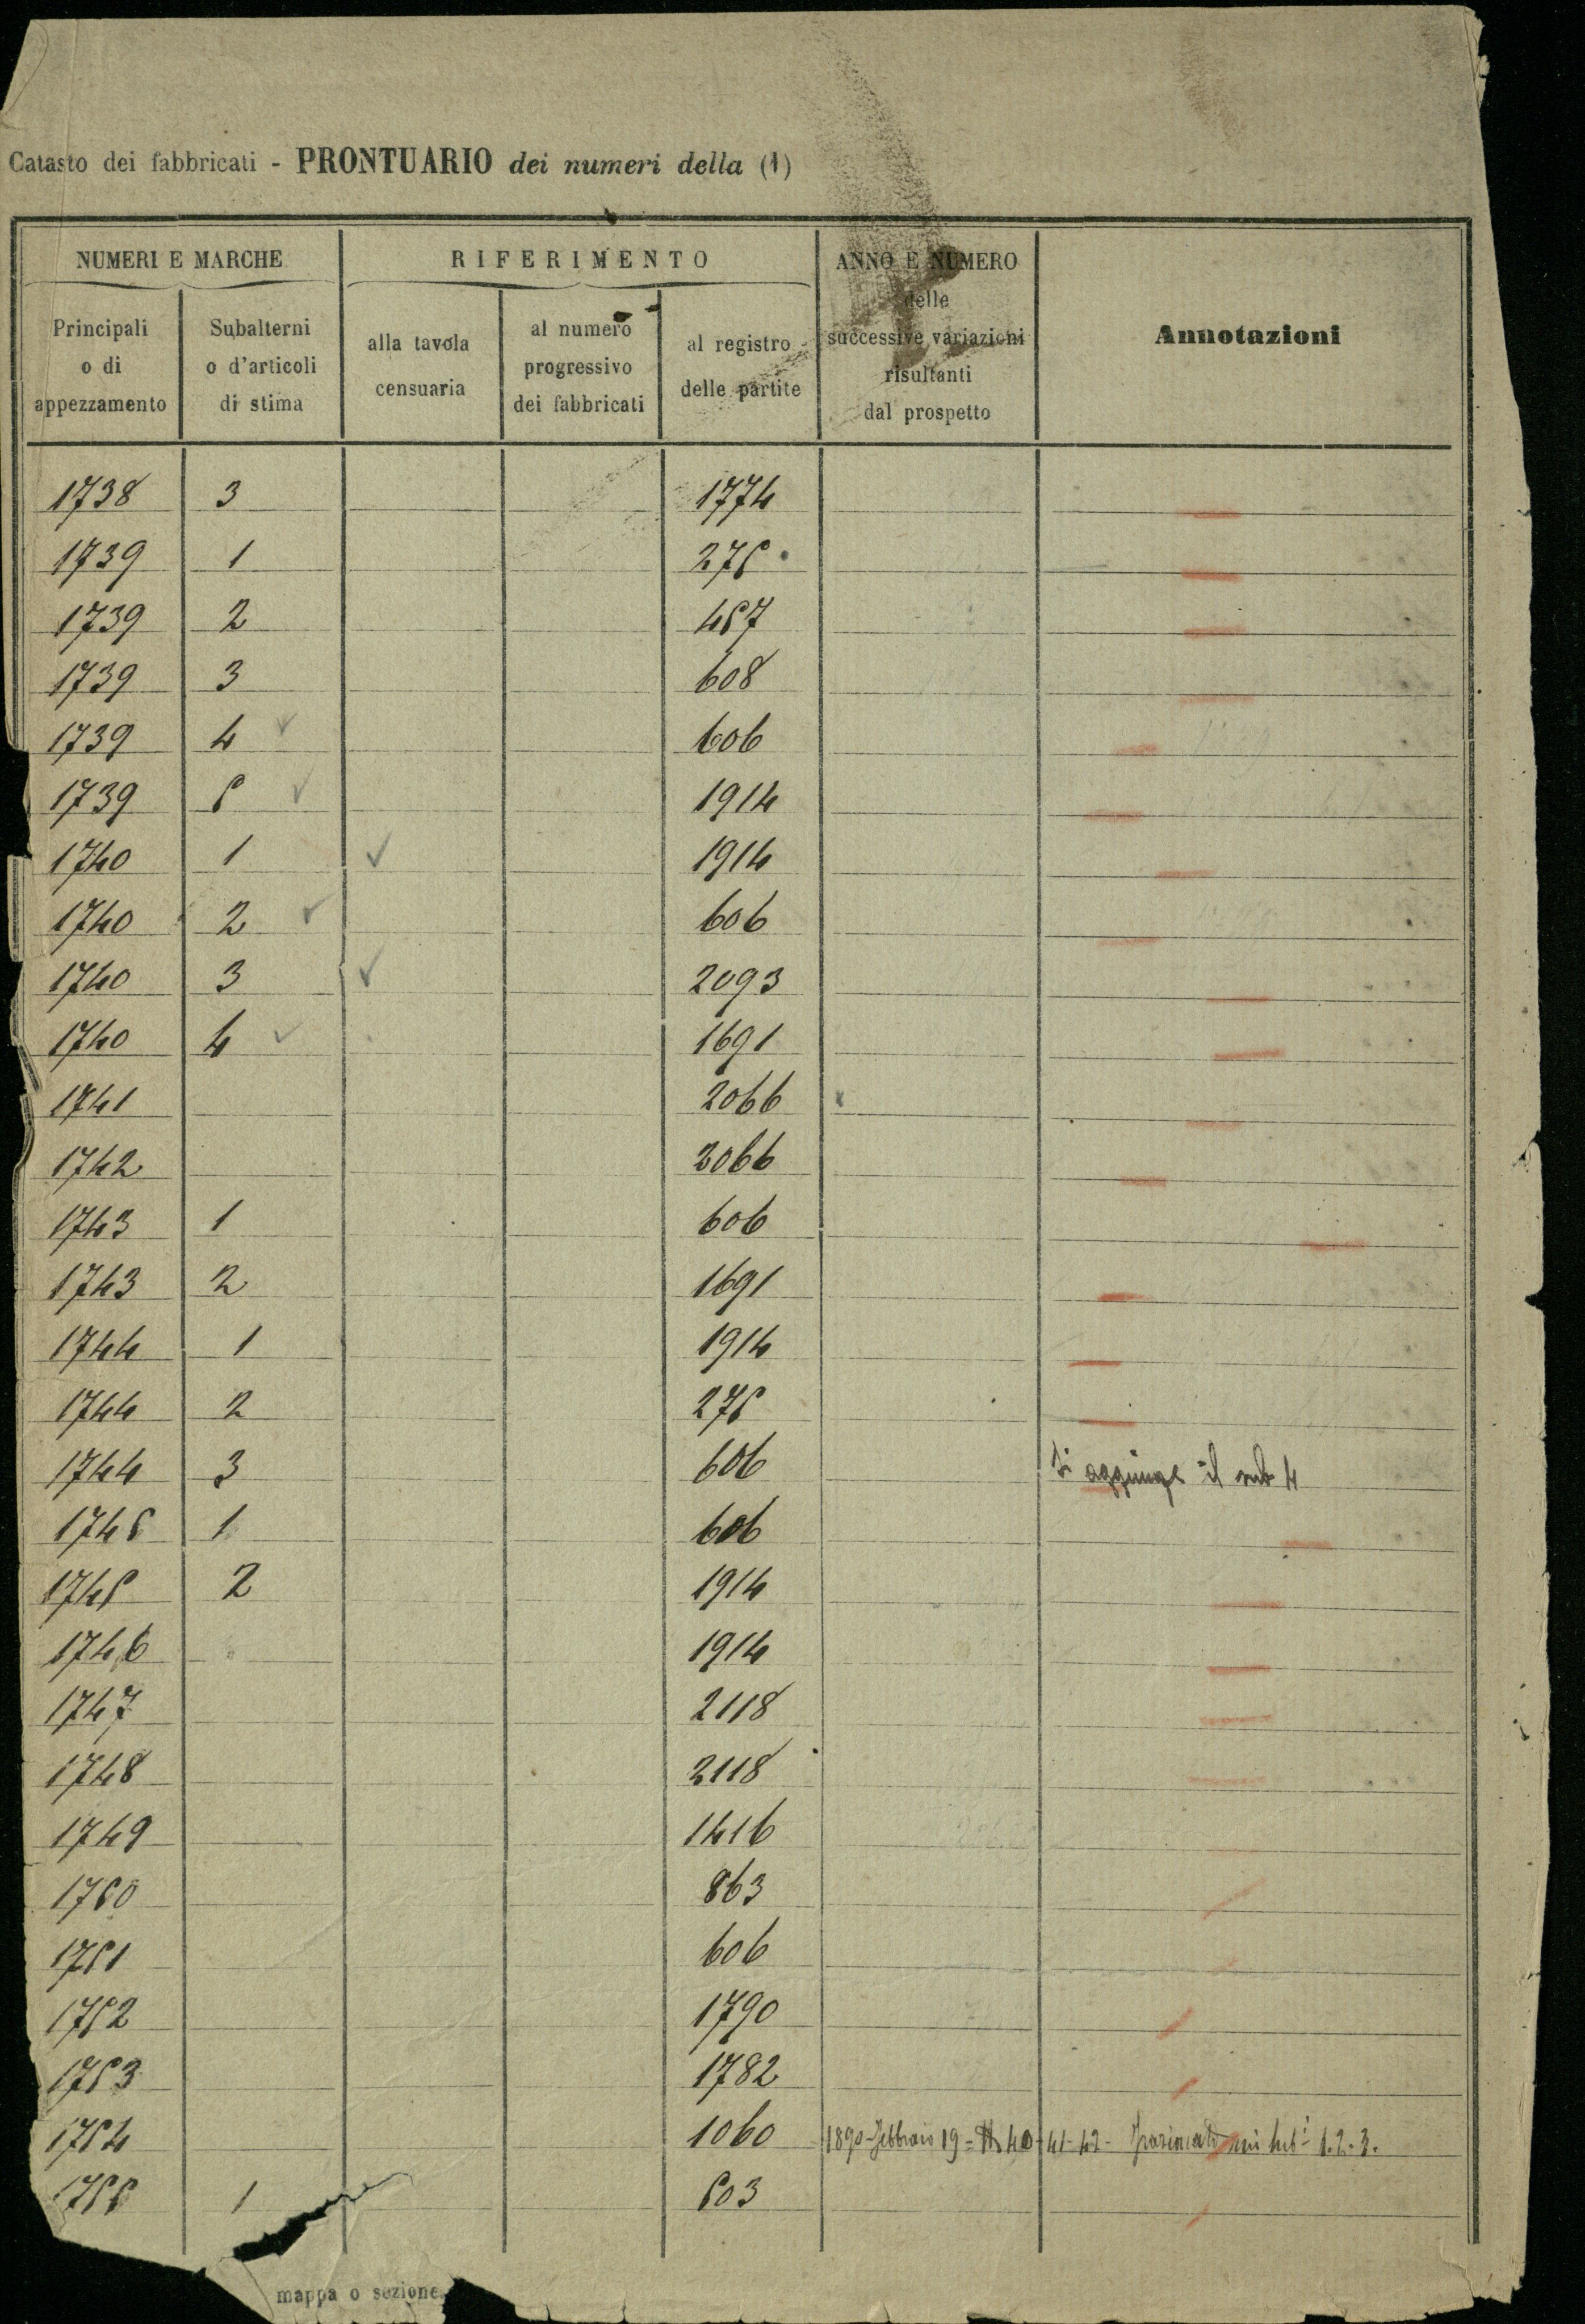 Catasto dei fabbricati - PRONTUARIO dei numeri della (1)
NUMERI E MARCHE
RIFERIMENTO
ANNO E NUMERO
delle
successive variazioni
risultanti
dal prospetto
Annotazioni
Principali
o di
appezzamento
Subalterni
o d'articoli
di stima
alla tavola
censuaria
al numero
progressivo
dei fabbricati
al registro
delle partite
1738 3 1774
1739 1 275
1739 2 457
1739 3 608
1739 4 606
1739 5 1914
1740 1 1914
1740 2 606
1740 3 2093
1740 4 1691
1741 2066
1742 2066
1743 1 606
1743 2 1691
1744 1 1914
1744 2 275
1744 3 606 Si aggiunge il sub 4
1745 1 606
1745 2 1914
1746 1914
1747 2118
1748 2118
1749 1416
1750 863
1751 606
1752 1790
1753 1782
1754 1060 1890 Febbraio 19 = 40-41-42- nei sub i 1.2.3.
1755 1 503
mappa o sezione